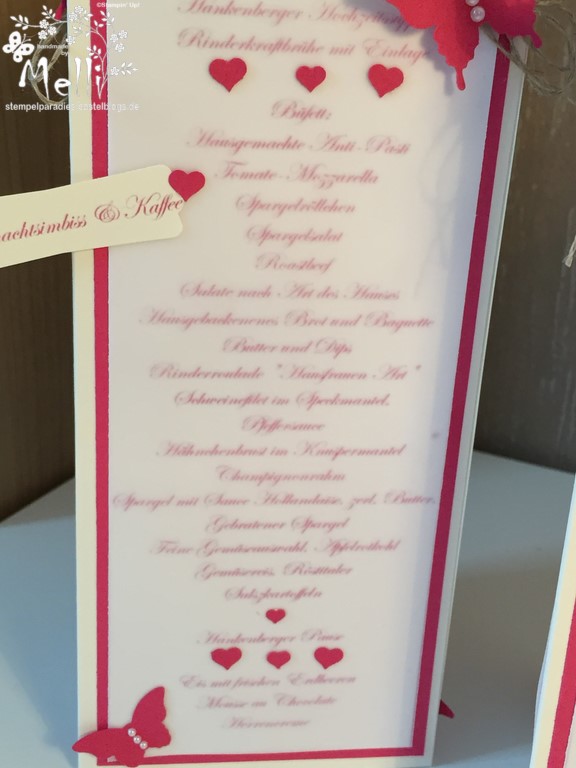 ©Stampin' Up!
handmade by:
Melli
stempelparadies.bastelblogs.de
Hankenberger
Rinderkraftbrühe mit Einlage
Büfett:
Hausgemachte Anti-Pasti
Tomate-Mozzarella
Spargelröllchen
Spargelsalat
Roastbeef
Salate nach Art des Hauses
Hausgebackenenes Brot und Baguette
Butter und Dips
Rinderroulade "Hausfrauen Art"
Schweinefilet im Speckmantel,
Pfeffersauce
Hähnchenbrust im Knuspermantel
Champignonrahm
Spargel mit Sauce Hollandaise, zerl. Butter,
Gebratener Spargel
Feine Gemüseauswahl, Apfelrotkohl
Gemüsereis, Röstitaler
Salzkartoffeln
Hankenberger Pause
Eis mit frischen Erdbeeren
Mousse au Chocolate
Herrencreme
achtsimbiss & Kaffee